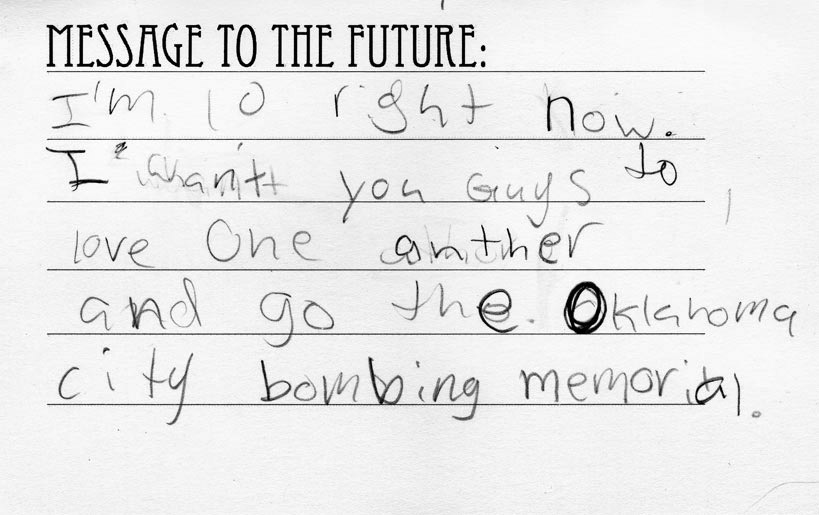 MESSAGE TO THE FUTURE:
I'm 10 right now.
I whant you Guys to
love One anther
and go the Oklahoma
city bombing memorial.